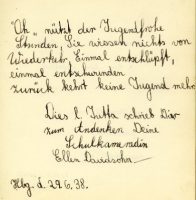 "Oh" nützt der Jugend frohe
Stunden, Sie wissen nichts von
Wiederkehr, Einmal entschlüpft,
einmal entschwunden
zurück kehrt keine Jugend mehr
Dies l. Jutta schrieb Dir
zum Andenken Deine
Schulkameradin
Ellen Davidsohn
Hbg. d. 29.6.38.